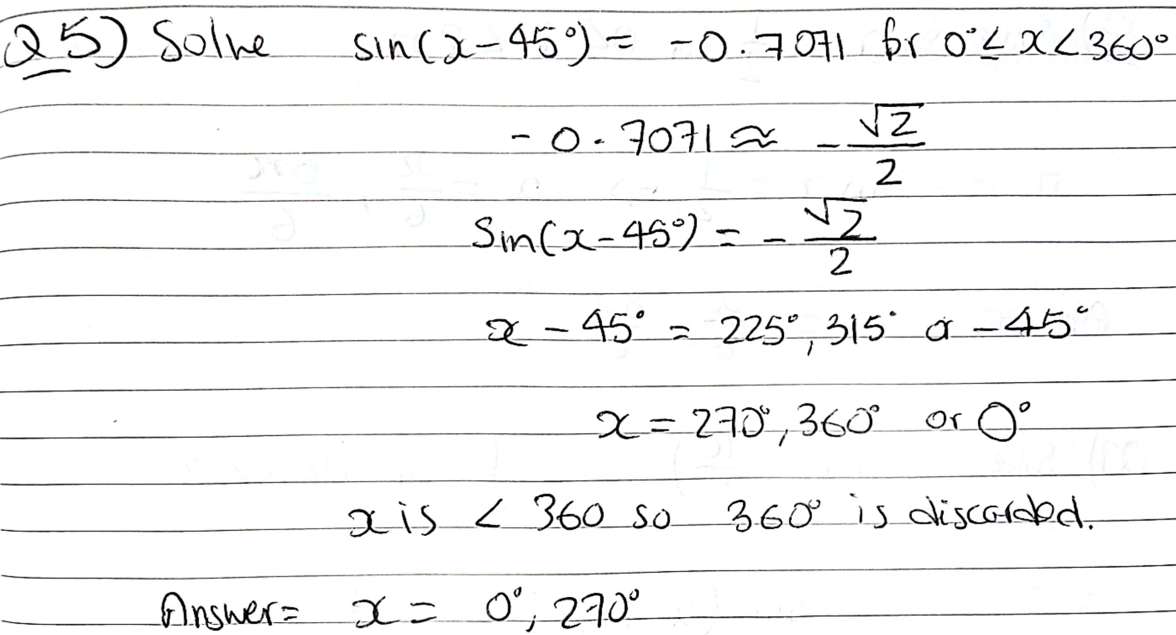 Q5) Solve sin(x-45°) = -0.7071 for 0°≤ x<360°
-0.7071 ≈ -√2/2
Sin(x-45°) = -√2/2
x - 45° = 225°, 315° or -45°
x = 270°, 360° or 0°
x is < 360 so 360° is discarded.
Answer = x = 0°, 270°